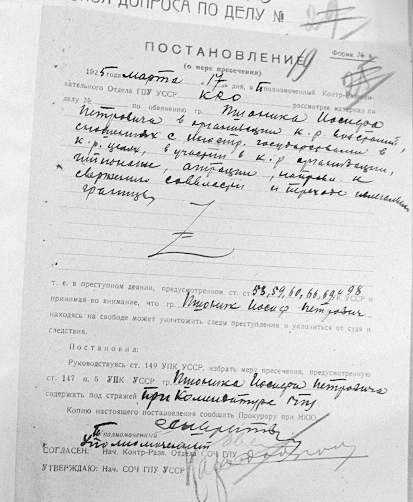 ДОПРОСА ПО ДЕЛУ №
ПОСТАНОВЛЕНИЕ
Форма №
(о мере пресечения)
1925 года марта 17 дня, я
полномоченный Контр-Разве-
дывательного Отдела ГПУ УССР КРО рассмотрев материал по
делу № по обвинению гр. Пшоника Иосифа
Петровича в организации к.р. восстаний,
сношениях с иностр. государствами в
к.р. целях, в участии в к.р. организации,
шпионаже, агитации,
свержению соввласти и переходе
границы
Z
т. е. в преступном деянии, предусмотренном ст. ст. 58, 59, 60, 66, 69 и 98 УК УССР и
принимая во внимание, что гр. Пшоник Иосиф Петрович
находясь на свободе может уничтожить следы преступления и уклониться от суда и
следствия.
Постановил:
Руководствуясь ст. 149 УПК УССР, избрать меру пресечения, предусмотренную
ст. 147 п. 5 УПК УССР гр. Пшоника Иосифа Петровича
содержать под стражей при Комендатуре ГПУ
Копию настоящего постановления сообщить Прокурору при НКЮ.
полномоченный
Уполномоченный
СОГЛАСЕН: Нач. Контр-Разв. Отдела СОЧ ГПУ
УТВЕРЖДАЮ: Нач. СОЧ ГПУ УССР